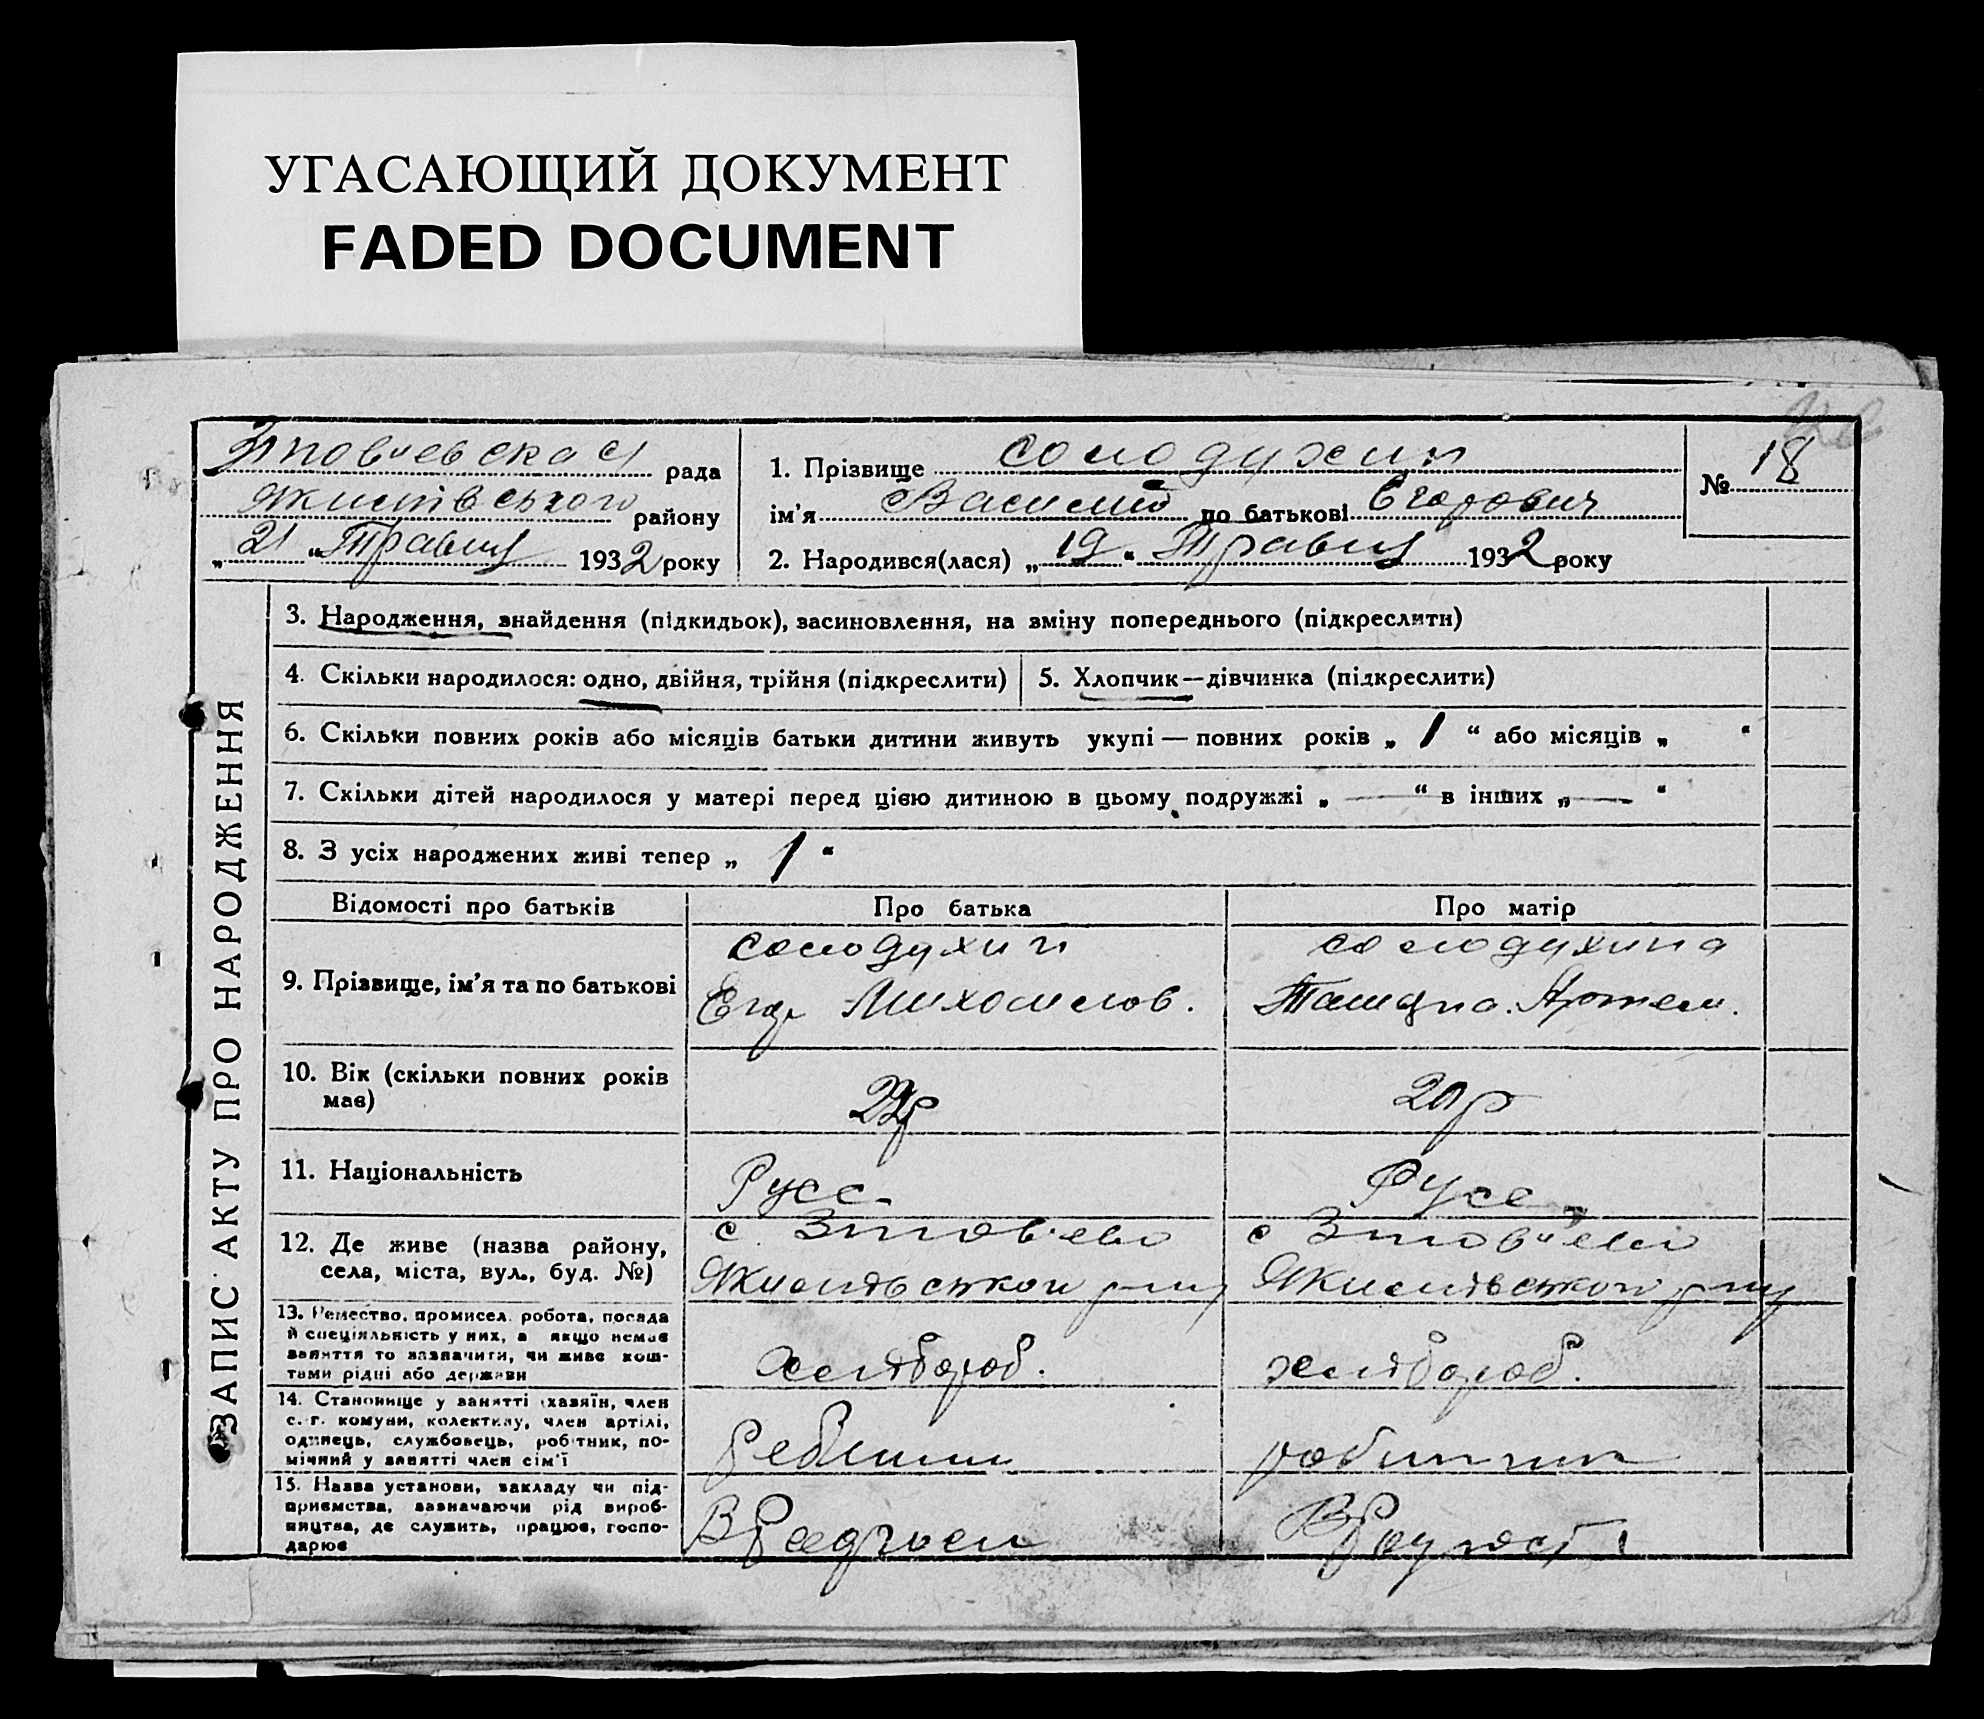 УГАСАЮЩИЙ ДОКУМЕНТ
FADED DOCUMENT
рада
району
„21“ Травня 1932 року
1. Прізвище Солодухин
ім'я Василий по батькові Єгорович
2. Народився(лася) „19“ Травня 1932 року
№ 18
ЗАПИС АКТУ ПРО НАРОДЖЕННЯ
3. Народження, знайдення (підкидьок), засиновлення, на зміну попереднього (підкреслити)
4. Скільки народилося: одно, двійня, трійня (підкреслити)
5. Хлопчик—дівчинка (підкреслити)
6. Скільки повних років або місяців батьки дитини живуть укупі — повних років „ 1 “ або місяців „ “
7. Скільки дітей народилося у матері перед цією дитиною в цьому подружжі „ — “ в інших „ — “
8. З усіх народжених живі тепер „ 1 “
Відомості про батьків
Про батька
Про матір
9. Прізвище, ім'я та по батькові
Солодухин
Егор Михайлов.
Солодухина
Артем.
10. Вік (скільки повних років
має)
20 р
11. Національність
Русс
Русс
12. Де живе (назва району,
села, міста, вул., буд. №)
с
с
13. Ремество, промисел, робота, посада
й спеціяльність у них, а якщо немає
заняття то зазначити, чи живе кош-
тами рідні або держави
хлібороб.
хлібороб.
14. Становище у занятті (хазяїн, член
с.-г. комуни, колективу, член артілі,
одинець, службовець, робітник, по-
мічний у занятті член сім'ї
15. Назва установи, закладу чи під-
приємства, зазначаючи рід вироб-
ництва, де служить, працює, госпо-
дарює
В
В